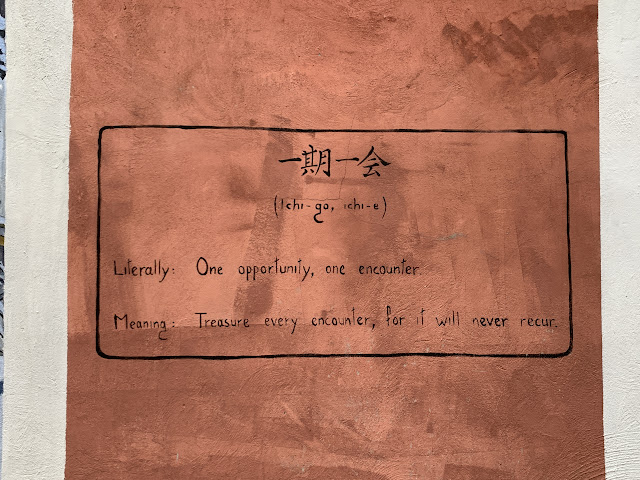 一期一会
(Ichi-go, ichi-e)
Literally: One opportunity, one encounter.
Meaning: Treasure every encounter, for it will never recur.